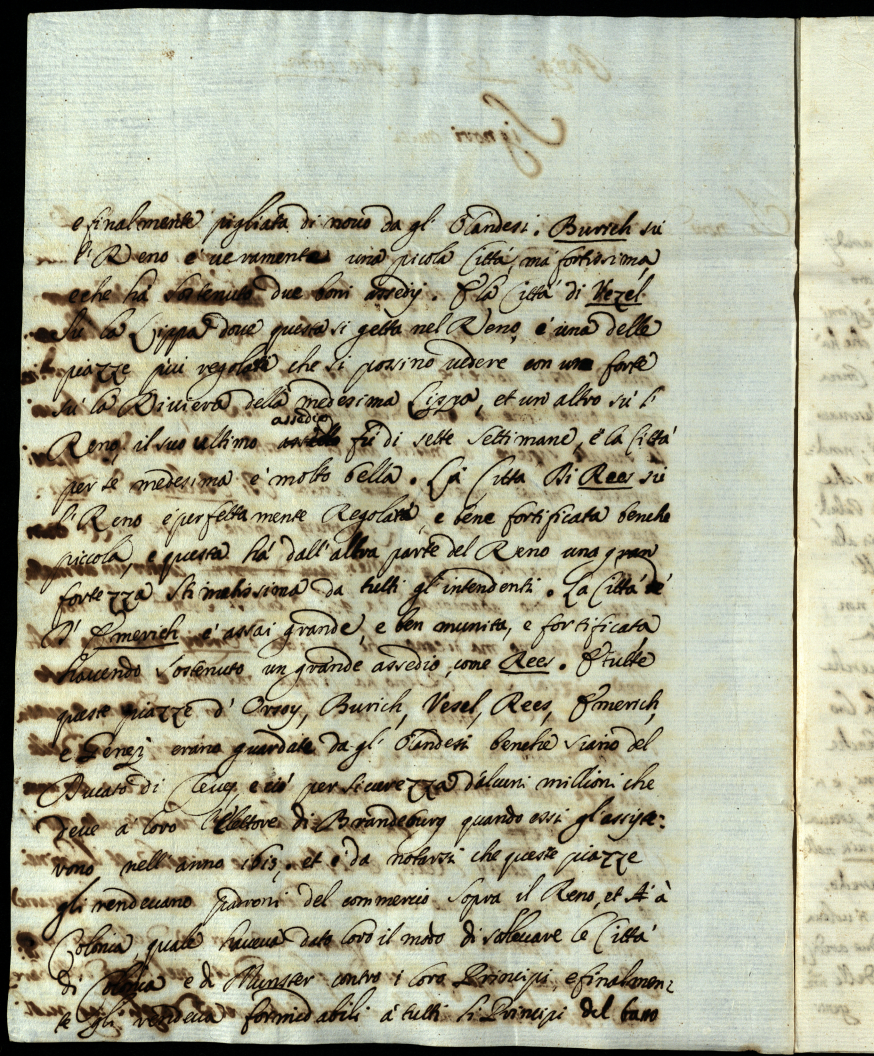 e finalmente pigliata di novo da gl' Olandesi. Burich sù
l' Reno e' veramente una picola Città, mà fortissima
e che hà sostenuto due boni assedij. E la Città di Vezel
sù la Lippa dove questa si getta nel Reno, é una delle
piazze più regolate che si possino vedere con un forte
sù la Riviera della medesima Lippa, et un altro sù l'
Reno, il suo ultimo assedio fù di sette settimane, é la Città
per se medesima e' molto bella. La Citta Di Rees sù
l' Reno e' perfettamente Regolata, e bene fortificata benche
piccola, e questa hà dall' altra parte del Reno una gran
fortezza stimatissima da tutti gl' intendenti. La Città
d' Emerich e' assai grande, e ben munita, e fortificata
havendo sostenuto un grande assedio, come Rees. E tutte
queste piazze d' Orsoy, Burich, Vesel, Rees, Emerich,
e erano guardate da gl' Olandesi benche siano del
Ducato di Cleves, e ciò per sicurezza d'alcuni millioni che
deve à loro l' Elettore di Brandeburg quando essi gl'
vono nell' anno et é da notarsi che queste piazze
gli rendevano padroni del commercio sopra il Reno, et à
Colonia, quale haveva dato loro il modo di solevare le Città
di Colonia e di Munster contro i loro Principi, e finalmen:
te gli rendeva formidabili á tutti li Principi del baso